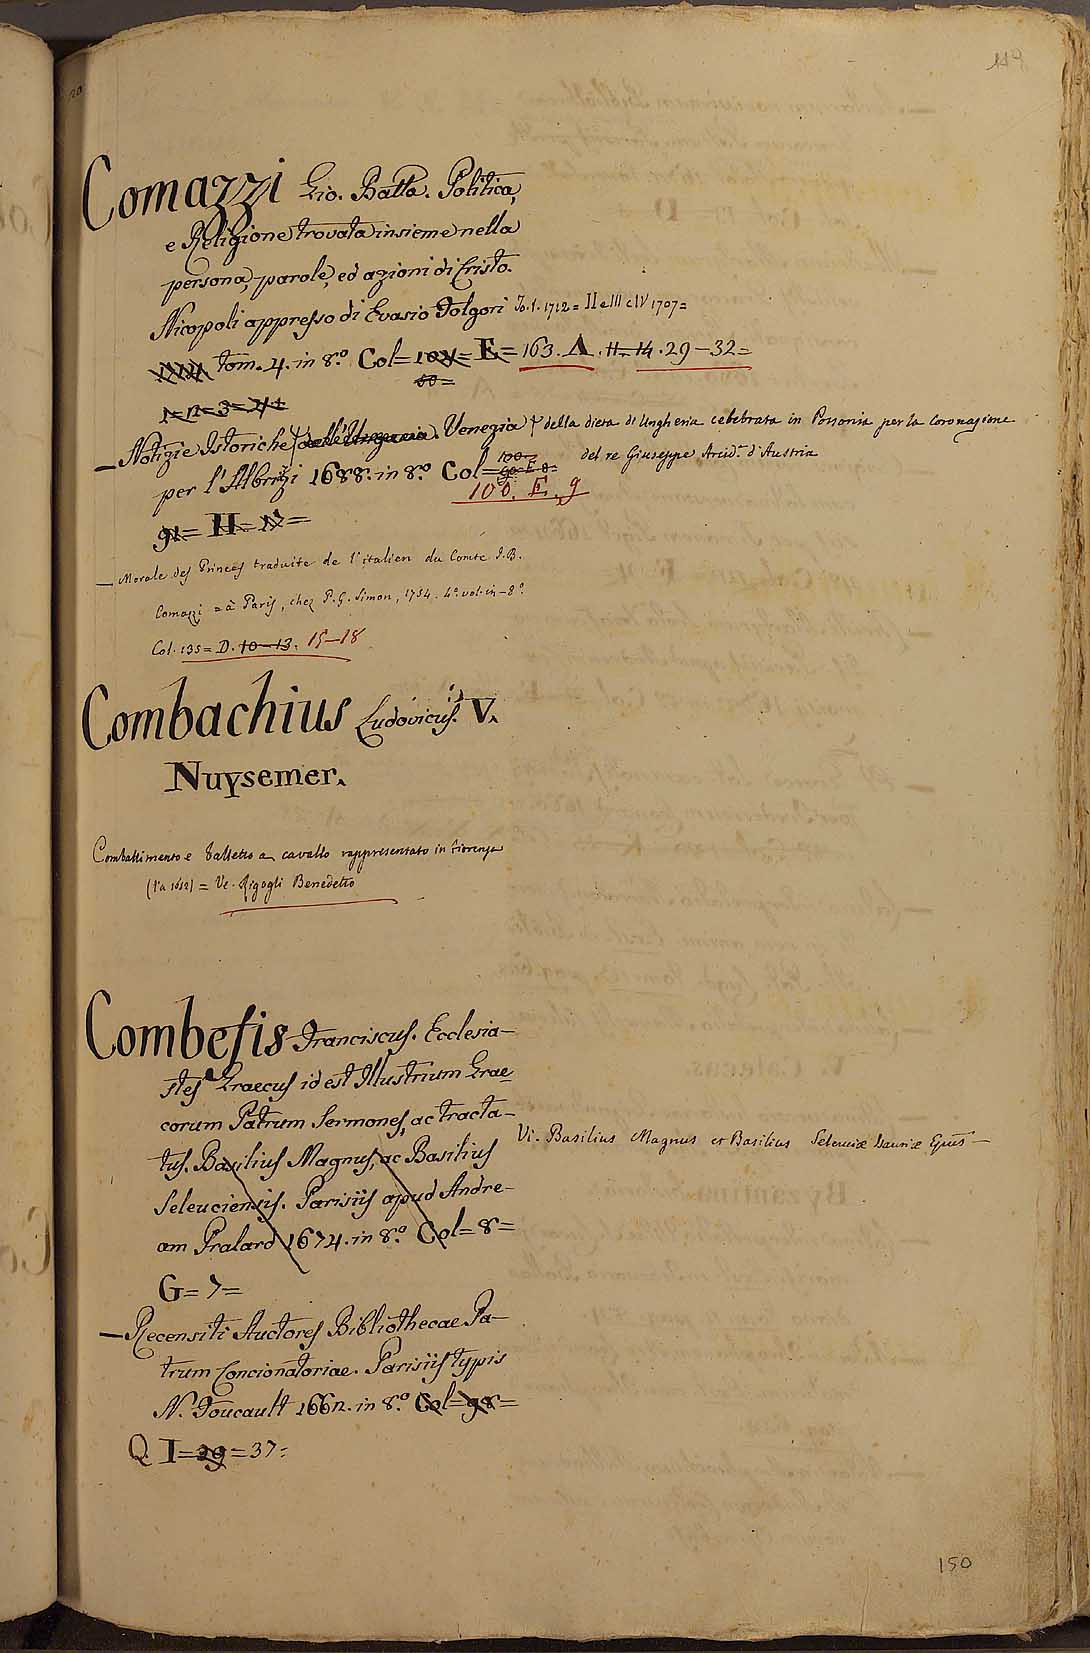 149
Comazzi Gio. Batta. Politica,
e Religione trovata insieme nella
persona, parole, ed azioni di Cristo.
Nicopoli appresso di Evasio Folgori To. 1. 1712 = II e III e IV 1707=
1711 tom. 4. in 8.º Col= 104= E= 163. A. 11-14. 29-32=
60=
1=2=3=4
— Notizie Istoriche dell'Ungaria. Venezia della dieta di Ungheria celebrata in Possonia per la Coronazione
del re Giuseppe Arcid.ª d'Austria
per l'Albrizzi 1688. in 8.º Col= 100. E. 9
91= H= 17=
— Morale des Princes traduite de l'italien du Comte J. B.
Comazzi = à Paris, chez P. G. Simon, 1754. 4.º vol. in-8º
Col. 135= D. 10-13. 15-18
Combachius Ludovicus. V.
Nuysemer.
Combattimento e balletto a cavallo rappresentato in Fiorenza
(l'a 1652) = Ve. Rigogli Benedetto
Combefis Franciscus. Ecclesia-
stes Graecus id est Illustrium Grae-
corum Patrum Sermones, ac tracta-
tus. Basilius Magnus, ac Basilius Vi. Basilius Magnus et Basilius Seleuciæ Isauriæ Epus—
Seleuciensis. Parisiis apud Andre-
am Pralard 1674. in 8.º Col= 8=
G= 7=
— Recensiti Auctores Bibliothecae Pa-
trum Concionatoriae. Parisiis typis
N. Foucault 1662. in 8.º Col= 98=
Q. I= 29= 37=
150